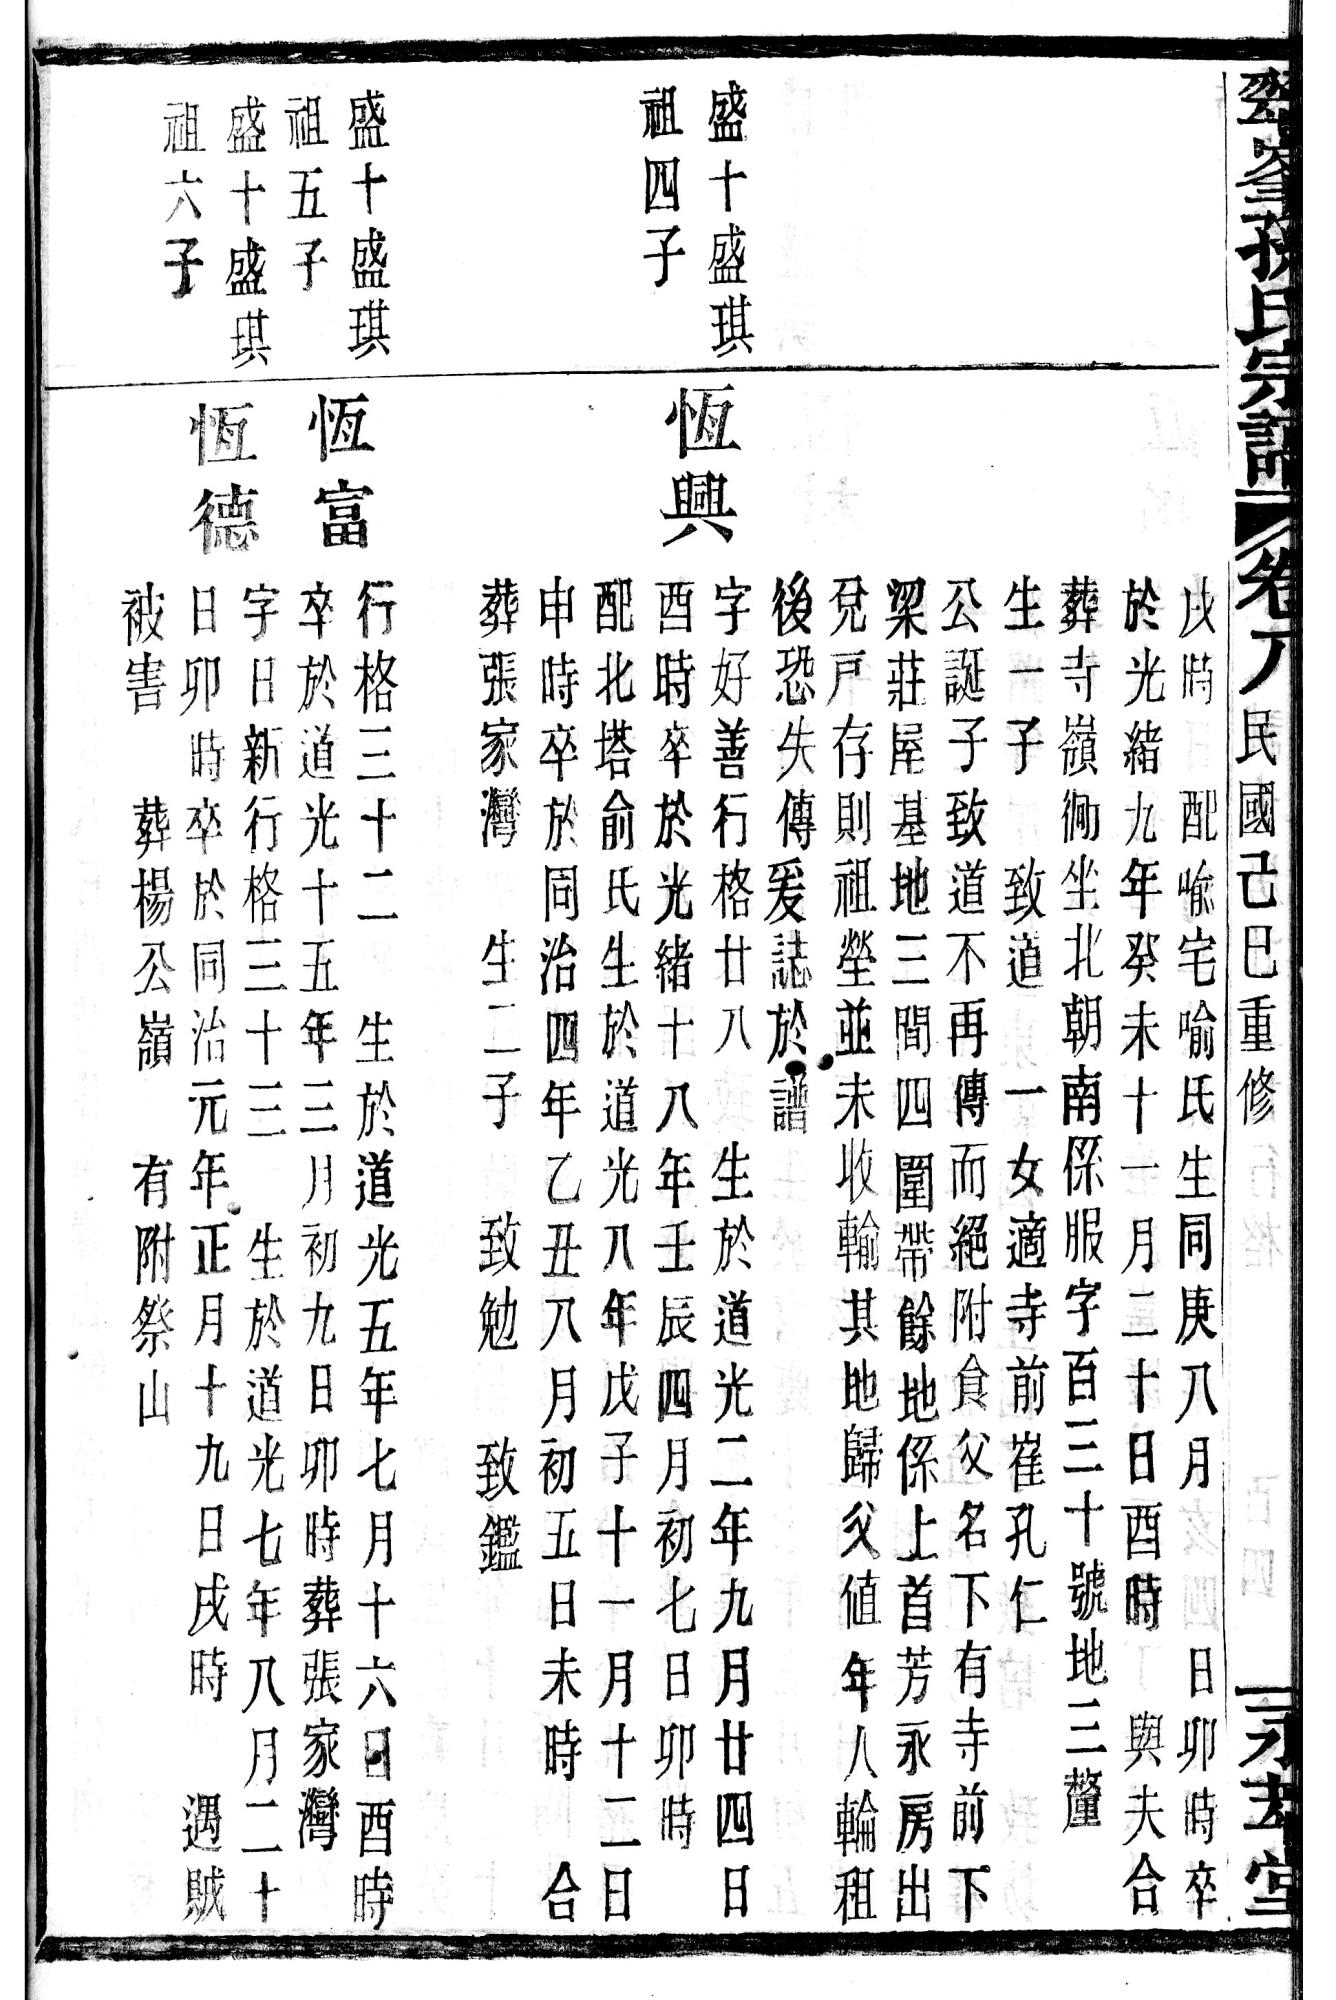 翠峯孫氏宗譜 卷八 民國己巳重修 一永孝堂
戌時 配喻宅喻氏生同庚八月 日卯時卒
於光緒九年癸未十一月二十日酉時 與夫合
葬寺嶺衕坐北朝南係服字百三十號地三釐
生一子 致道 一女適寺前崔孔仁
公誕子致道不再傳而絕附食父名下有寺前下
梁莊屋基地三間四圍帶餘地係上首芳永房出
兌戸存則祖塋並未收輸其地歸父值年人輪租
後恐失傳爰誌於譜
盛十盛琪
祖四子
恆興
字好善行格廿八 生於道光二年九月廿四日
酉時卒於光緒十八年壬辰四月初七日卯時
配北塔俞氏生於道光八年戊子十一月十二日
申時卒於同治四年乙丑八月初五日未時 合
葬張家灣 生二子 致勉 致鑑
盛十盛琪
祖五子
恆富
行格三十二 生於道光五年七月十六日酉時
卒於道光十五年三月初九日卯時葬張家灣
盛十盛琪
祖六子
恆德
字日新行格三十三 生於道光七年八月二十
日卯時卒於同治元年正月十九日戌時 遇賊
被害 葬楊公嶺 有附祭山